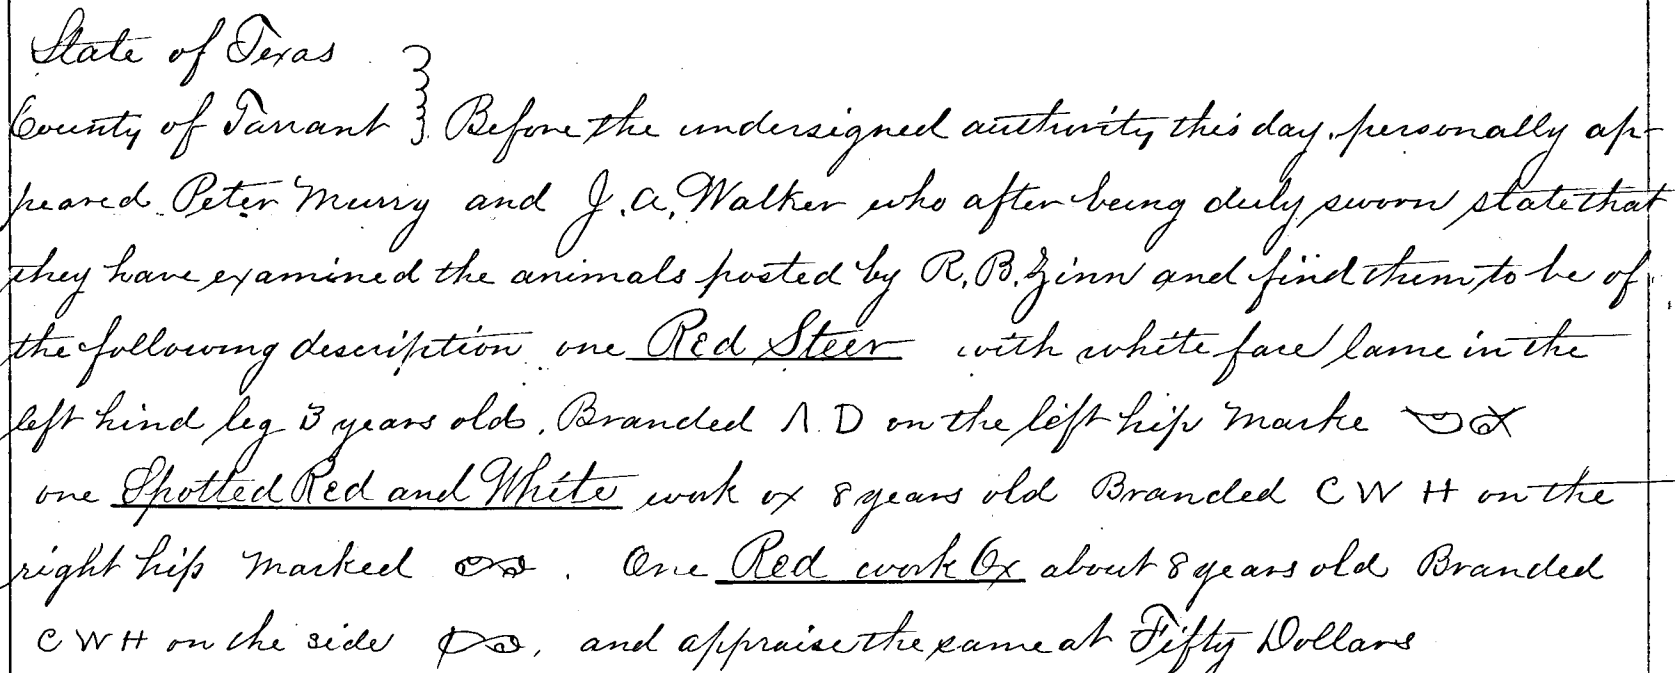 State of Texas
County of Tarrant } Before the undersigned authority this day, personally ap-
peared Peter Murry and J. A. Walker who after being duly sworn state that
they have examined the animals posted by R. B. Zinn and find them to be of
the following description one Red Steer with white face lame in the
left hind leg 3 years old. Branded Λ D on the left hip Marke
one Spotted Red and White work ox 8 years old Branded C W H on the
right hip Marked . One Red work Ox about 8 years old Branded
C W H on the side , and appraise the same at Fifty Dollars